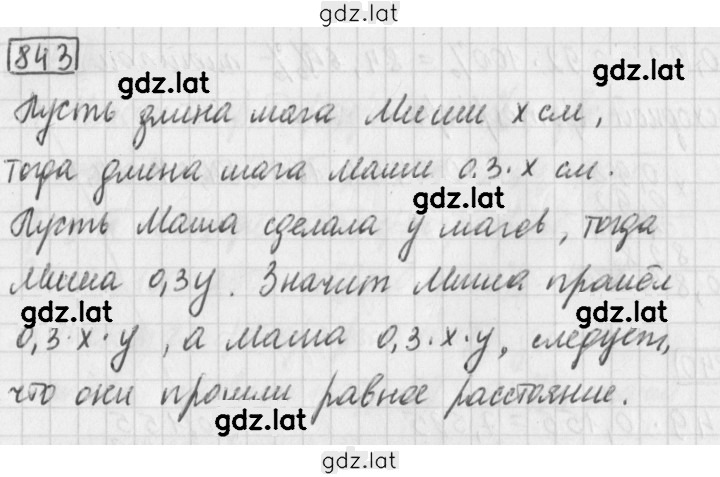 gdz.lat
843
gdz.lat
gdz.lat
Пусть длина шага Миши x см,
тогда длина шага Маши 0.3·x см.
gdz.lat
Пусть Маша сделала y шагов, тогда
Миша 0,3y. Значит Миша прошёл
gdz.lat
gdz.lat
0,3·x·y, а Маша 0,3·x·y, следует,
что они прошли равное расстояние.
gdz.lat
gdz.lat